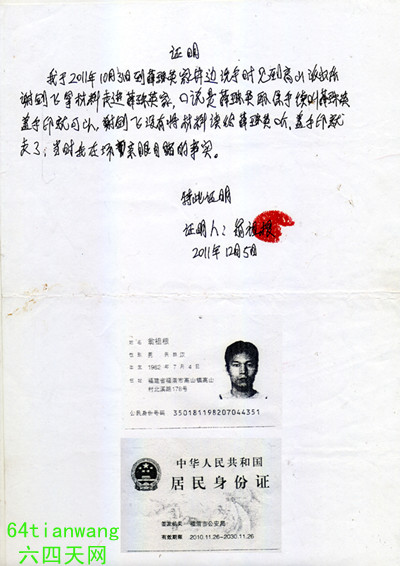 证明
我于2011年10月31日到薛珠英家井边洗手时见到高山派出所
谢剑飞拿材料走进薛珠英家，口说是薛珠英取保手续叫薛珠英
盖手印就可以，谢剑飞没有将材料读给薛珠英听，盖手印就
走了，当时我在场亲眼目睹的事实。
特此证明
证明人：翁祖根
2011年12月5日
姓名 翁祖根
性别 男 民族 汉
出生 1982年7月4日
住址 福建省福清市高山镇高山
村北溪路178号
公民身份号码 350181198207044351
中华人民共和国
居民身份证
签发机关 福清市公安局
有效期限 2010.11.26-2030.11.26
64tianwang
六四天网